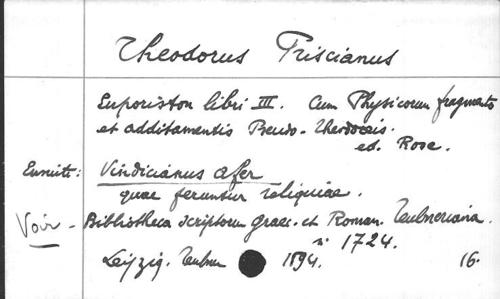 Theodorus Priscianus
Euporiston libri III. Cum Physicorum fragmento
et additamentis Pseudo-Theodoreis.
ed. Rose.
Ensuite: Vindicianus Afer
quae feruntur reliquiae.
Voir - Bibliotheca scriptorum Graec. et Roman. Teubneriana.
n° 1724.
Leipzig. Teubner 1894. 16.